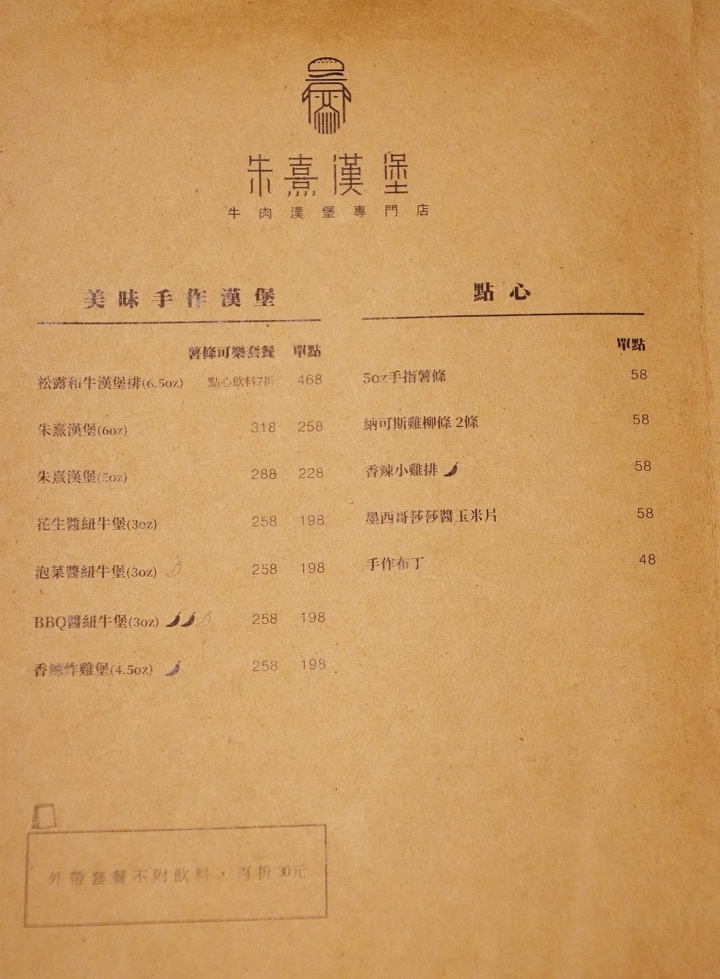 朱熹漢堡
牛肉漢堡專門店
美味手作漢堡
薯條可樂套餐 單點
松露和牛漢堡排(6.5oz) 點心飲料7折 468
朱熹漢堡(6oz) 318 258
朱熹漢堡(5oz) 288 228
花生醬紐牛堡(3oz) 258 198
泡菜醬紐牛堡(3oz) 258 198
BBQ醬紐牛堡(3oz) 258 198
香辣炸雞堡(4.5oz) 258 198
點心
單點
5oz手指薯條 58
納可斯雞柳條 2條 58
香辣小雞排 58
墨西哥莎莎醬玉米片 58
手作布丁 48
外帶套餐不附飲料，再折30元